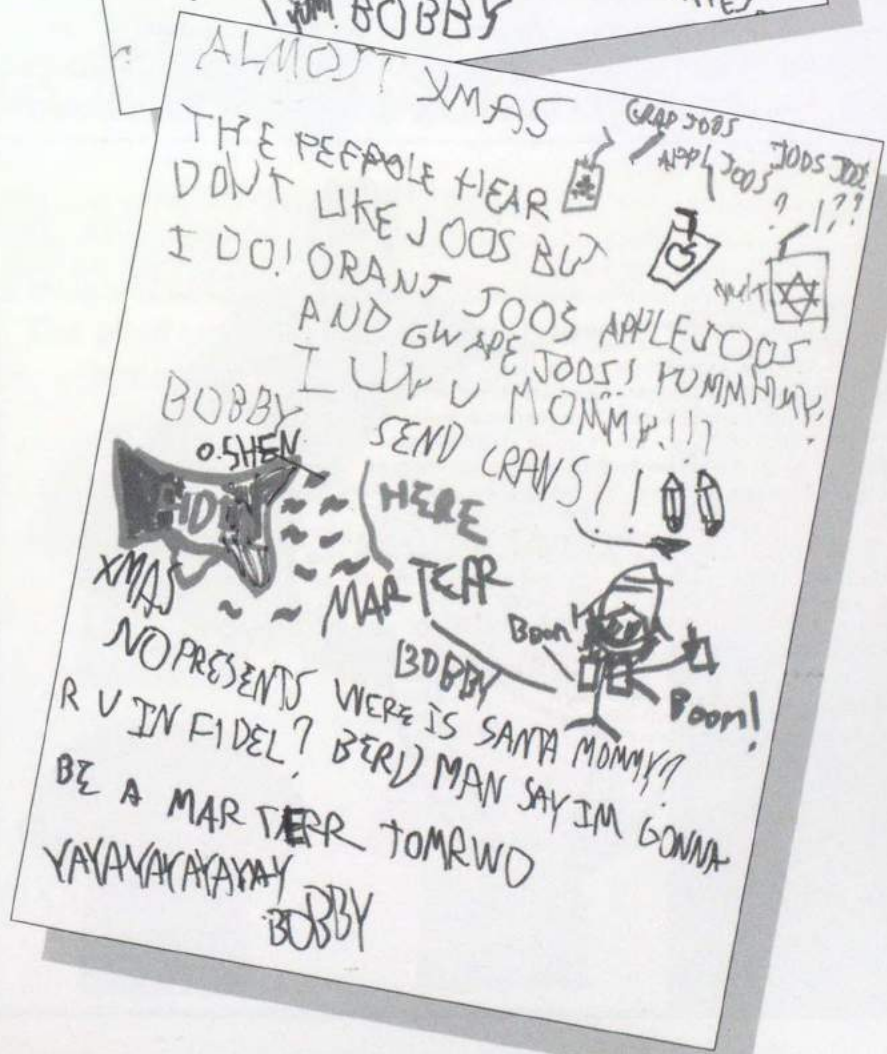 YUM! BOBBY
ALMOST XMAS
GRAP JOOS
APPL JOOS
JOOS JOOS
? !??
THE PEEPOLE HEAR
DONT LIKE JOOS BUT
I DO! ORANJ JOOS APPLEJOOS
AND GWAPE JOOS! YUMMMMY.
I LUV U MOMMY!!!
BOBBY
SEND CRANS!!
O.SHEN
HERE
MARTERR
XMAS
BOBBY
Boom!
Boom!
NO PRESENTS WERE IS SANTA MOMMY?
R U INFIDEL? BERD MAN SAY IM GONNA
BE A MARTERR TOMRWO
YAYAYAYAYAYAY
BOBBY